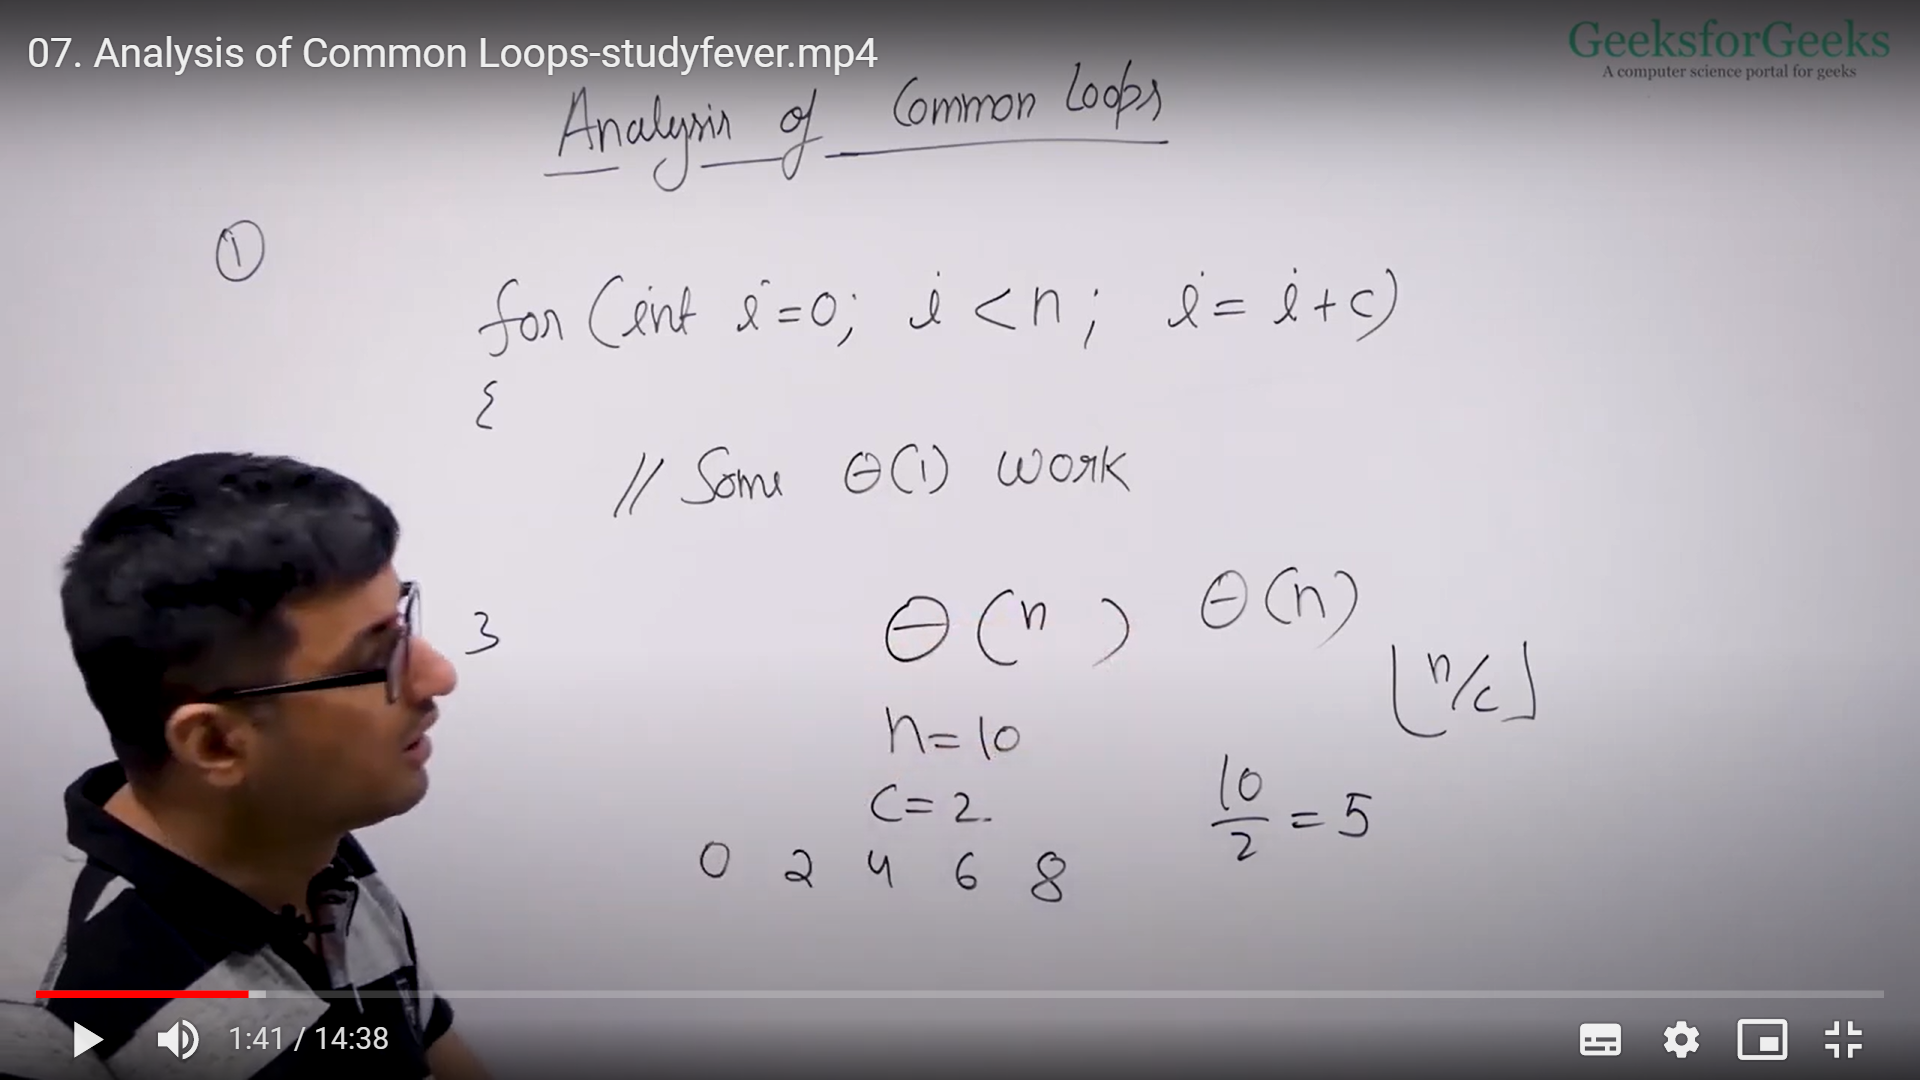 07. Analysis of Common Loops-studyfever.mp4
GeeksforGeeks
A computer science portal for geeks
Analysis of Common Loops
①
for (int i=0; i<n; i=i+c)
{
// Some Θ(1) work
}
Θ(n) Θ(n)
⌊n/c⌋
n=10
c=2.
10/2 = 5
0 2 4 6 8
1:41 / 14:38